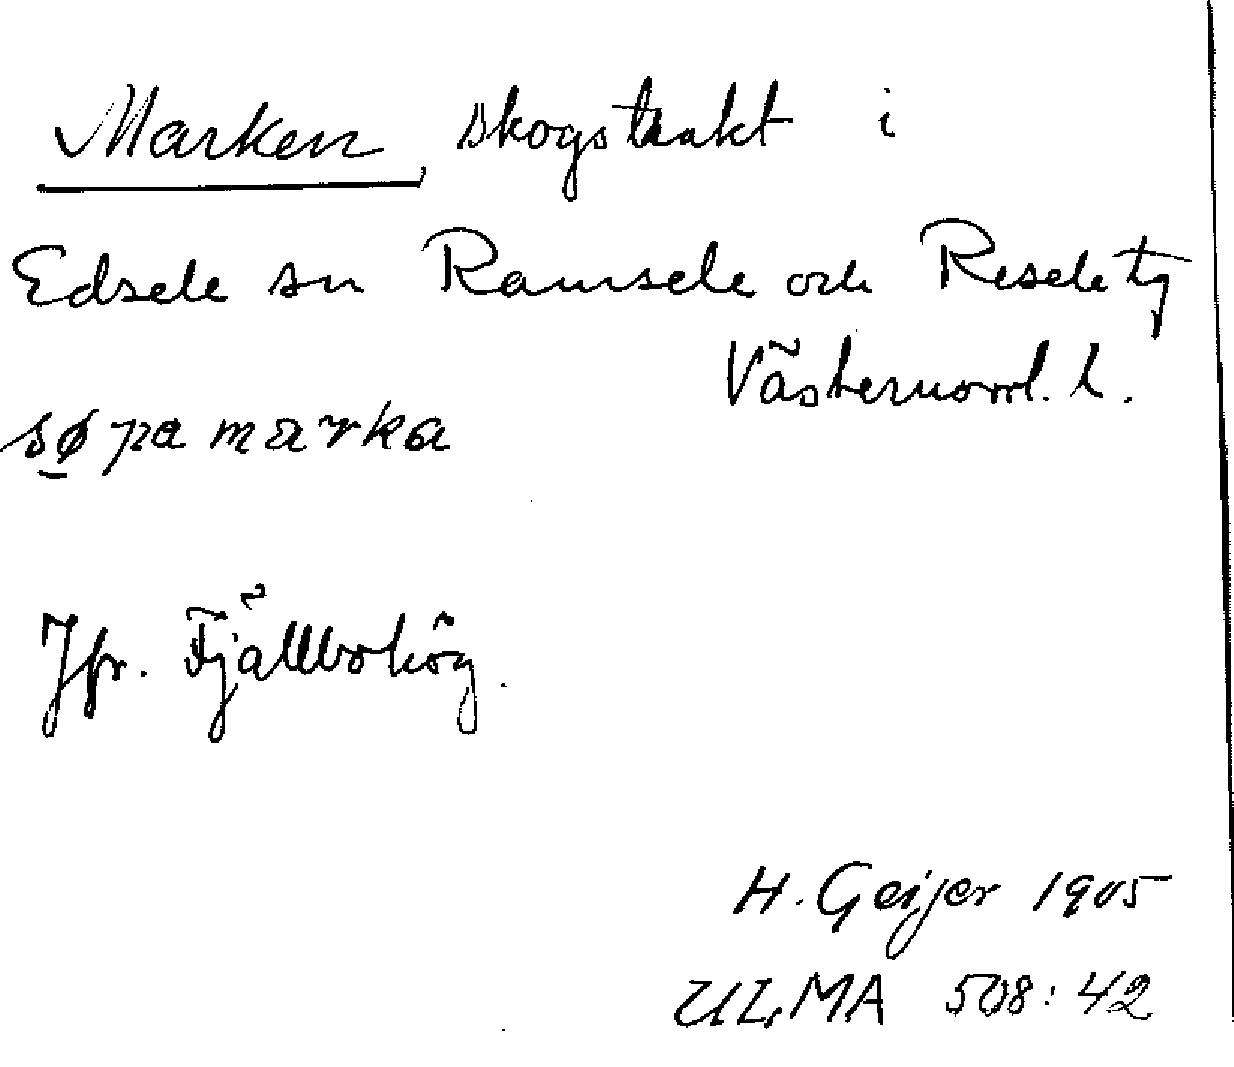 Marken, skogstrakt i
Edsele sn Ramsele och Resele tg
Västernorrl. l.
sø̲ pa marka
Jfr. Fjällbohög.
H. Geijer 1905
ULMA 508:42